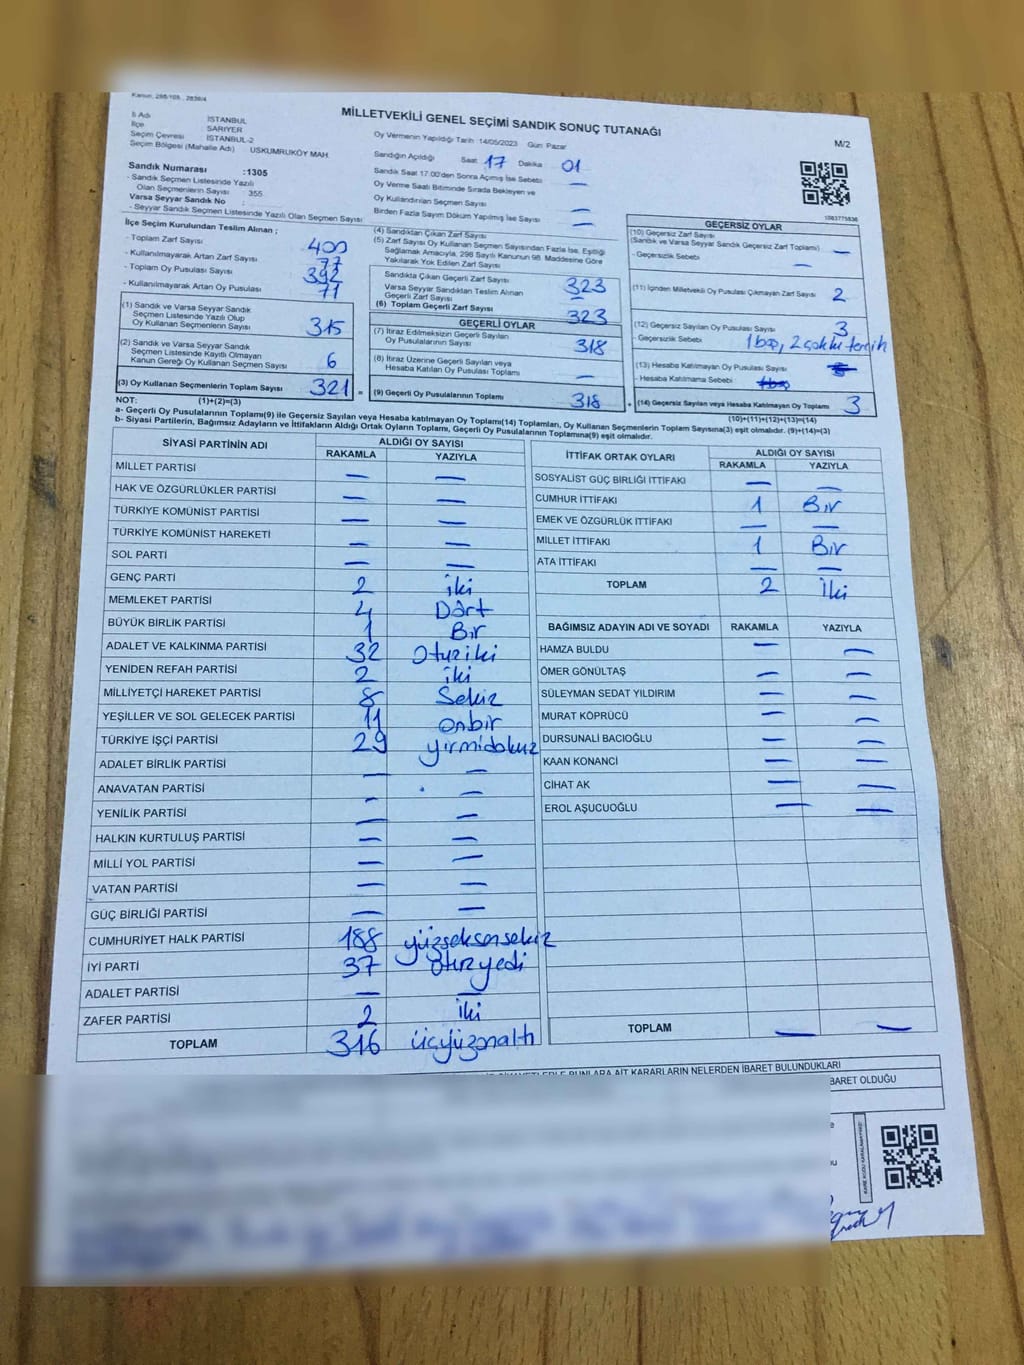 Kanun, 298/105 , 2839/4
MİLLETVEKİLİ GENEL SEÇİMİ SANDIK SONUÇ TUTANAĞI
M/2
İl Adı İSTANBUL
İlçe SARIYER
Seçim Çevresi İSTANBUL-2
Seçim Bölgesi (Mahalle Adı) USKUMRUKÖY MAH.
Sandık Numarası :1305
- Sandık Seçmen Listesinde Yazılı
Olan Seçmenlerin Sayısı : 355
Varsa Seyyar Sandık No :
- Seyyar Sandık Seçmen Listesinde Yazılı Olan Seçmen Sayısı :
Oy Vermenin Yapıldığı Tarih :14/05/2023 Gün: Pazar
Sandığın Açıldığı Saat: 17 Dakika 01
Sandık Saat 17:00'den Sonra Açılmış İse Sebebi —
Oy Verme Saati Bitiminde Sırada Bekleyen ve
Oy Kullandırılan Seçmen Sayısı —
Birden Fazla Sayım Döküm Yapılmış İse Sayısı —
1083775836
İlçe Seçim Kurulundan Teslim Alınan ;
- Toplam Zarf Sayısı 400
- Kullanılmayarak Artan Zarf Sayısı 77
- Toplam Oy Pusulası Sayısı 392
- Kullanılmayarak Artan Oy Pusulası 71
(1) Sandık ve Varsa Seyyar Sandık
Seçmen Listesinde Yazılı Olup
Oy Kullanan Seçmenlerin Sayısı 315
(2) Sandık ve Varsa Seyyar Sandık
Seçmen Listesinde Kayıtlı Olmayan
Kanun Gereği Oy Kullanan Seçmen Sayısı 6
(3) Oy Kullanan Seçmenlerin Toplam Sayısı 321
(4) Sandıktan Çıkan Zarf Sayısı
(5) Zarf Sayısı Oy Kullanan Seçmen Sayısından Fazla İse, Eşitliği
Sağlamak Amacıyla, 298 Sayılı Kanunun 98. Maddesine Göre
Yakılarak Yok Edilen Zarf Sayısı
Sandıkta Çıkan Geçerli Zarf Sayısı 323
Varsa Seyyar Sandıktan Teslim Alınan
Geçerli Zarf Sayısı —
(6) Toplam Geçerli Zarf Sayısı 323
GEÇERLİ OYLAR
(7) İtiraz Edilmeksizin Geçerli Sayılan
Oy Pusulalarının Sayısı 318
(8) İtiraz Üzerine Geçerli Sayılan veya
Hesaba Katılan Oy Pusulası Toplamı —
= (9) Geçerli Oy Pusulalarının Toplamı 318
GEÇERSİZ OYLAR
(10) Geçersiz Zarf Sayısı
(Sandık ve Varsa Seyyar Sandık Geçersiz Zarf Toplamı) —
- Geçersizlik Sebebi —
(11) İçinden Milletvekili Oy Pusulası Çıkmayan Zarf Sayısı 2
(12) Geçersiz Sayılan Oy Pusulası Sayısı 3
- Geçersizlik Sebebi 1 boş, 2 çoklu tercih
(13) Hesaba Katılmayan Oy Pusula Sayısı
- Hesaba Katılmama Sebebi
+ (14) Geçersiz Sayılan veya Hesaba Katılmayan Oy Toplamı 3
NOT: (1)+(2)=(3)
(10)+(11)+(12)+(13)=(14)
a- Geçerli Oy Pusulalarının Toplamı(9) ile Geçersiz Sayılan veya Hesaba katılmayan Oy Toplamı(14) Toplamları, Oy Kullanan Seçmenlerin Toplam Sayısına(3) eşit olmalıdır. (9)+(14)=(3)
b- Siyasi Partilerin, Bağımsız Adayların ve İttifakların Aldığı Ortak Oyların Toplamı, Geçerli Oy Pusulalarının Toplamına(9) eşit olmalıdır.
SİYASİ PARTİNİN ADI ALDIĞI OY SAYISI
RAKAMLA YAZIYLA
MİLLET PARTİSİ — —
HAK VE ÖZGÜRLÜKLER PARTİSİ — —
TÜRKİYE KOMÜNİST PARTİSİ — —
TÜRKİYE KOMÜNİST HAREKETİ — —
SOL PARTİ — —
GENÇ PARTİ 2 iki
MEMLEKET PARTİSİ 4 Dört
BÜYÜK BİRLİK PARTİSİ 1 Bir
ADALET VE KALKINMA PARTİSİ 32 Otuziki
YENİDEN REFAH PARTİSİ 2 iki
MİLLİYETÇİ HAREKET PARTİSİ 8 Sekiz
YEŞİLLER VE SOL GELECEK PARTİSİ 11 onbir
TÜRKİYE İŞÇİ PARTİSİ 29 yirmidokuz
ADALET BİRLİK PARTİSİ — —
ANAVATAN PARTİSİ — —
YENİLİK PARTİSİ — —
HALKIN KURTULUŞ PARTİSİ — —
MİLLİ YOL PARTİSİ — —
VATAN PARTİSİ — —
GÜÇ BİRLİĞİ PARTİSİ — —
CUMHURİYET HALK PARTİSİ 188 yüzseksensekiz
İYİ PARTİ 37 Otuzyedi
ADALET PARTİSİ — —
ZAFER PARTİSİ 2 İki
TOPLAM 316 üçyüzonaltı
İTTİFAK ORTAK OYLARI ALDIĞI OY SAYISI
RAKAMLA YAZIYLA
SOSYALİST GÜÇ BİRLİĞİ İTTİFAKI — —
CUMHUR İTTİFAKI 1 Bir
EMEK VE ÖZGÜRLÜK İTTİFAKI — —
MİLLET İTTİFAKI 1 Bir
ATA İTTİFAKI — —
TOPLAM 2 İki
BAĞIMSIZ ADAYIN ADI VE SOYADI RAKAMLA YAZIYLA
HAMZA BULDU — —
ÖMER GÖNÜLTAŞ — —
SÜLEYMAN SEDAT YILDIRIM — —
MURAT KÖPRÜCÜ — —
DURSUNALİ BACIOĞLU — —
KAAN KONANCİ — —
CİHAT AK — —
EROL AŞUCUOĞLU — —
TOPLAM — —
BUNLARA AİT KARARLARIN NELERDEN İBARET BULUNDUKLARI
BARET OLDUĞU